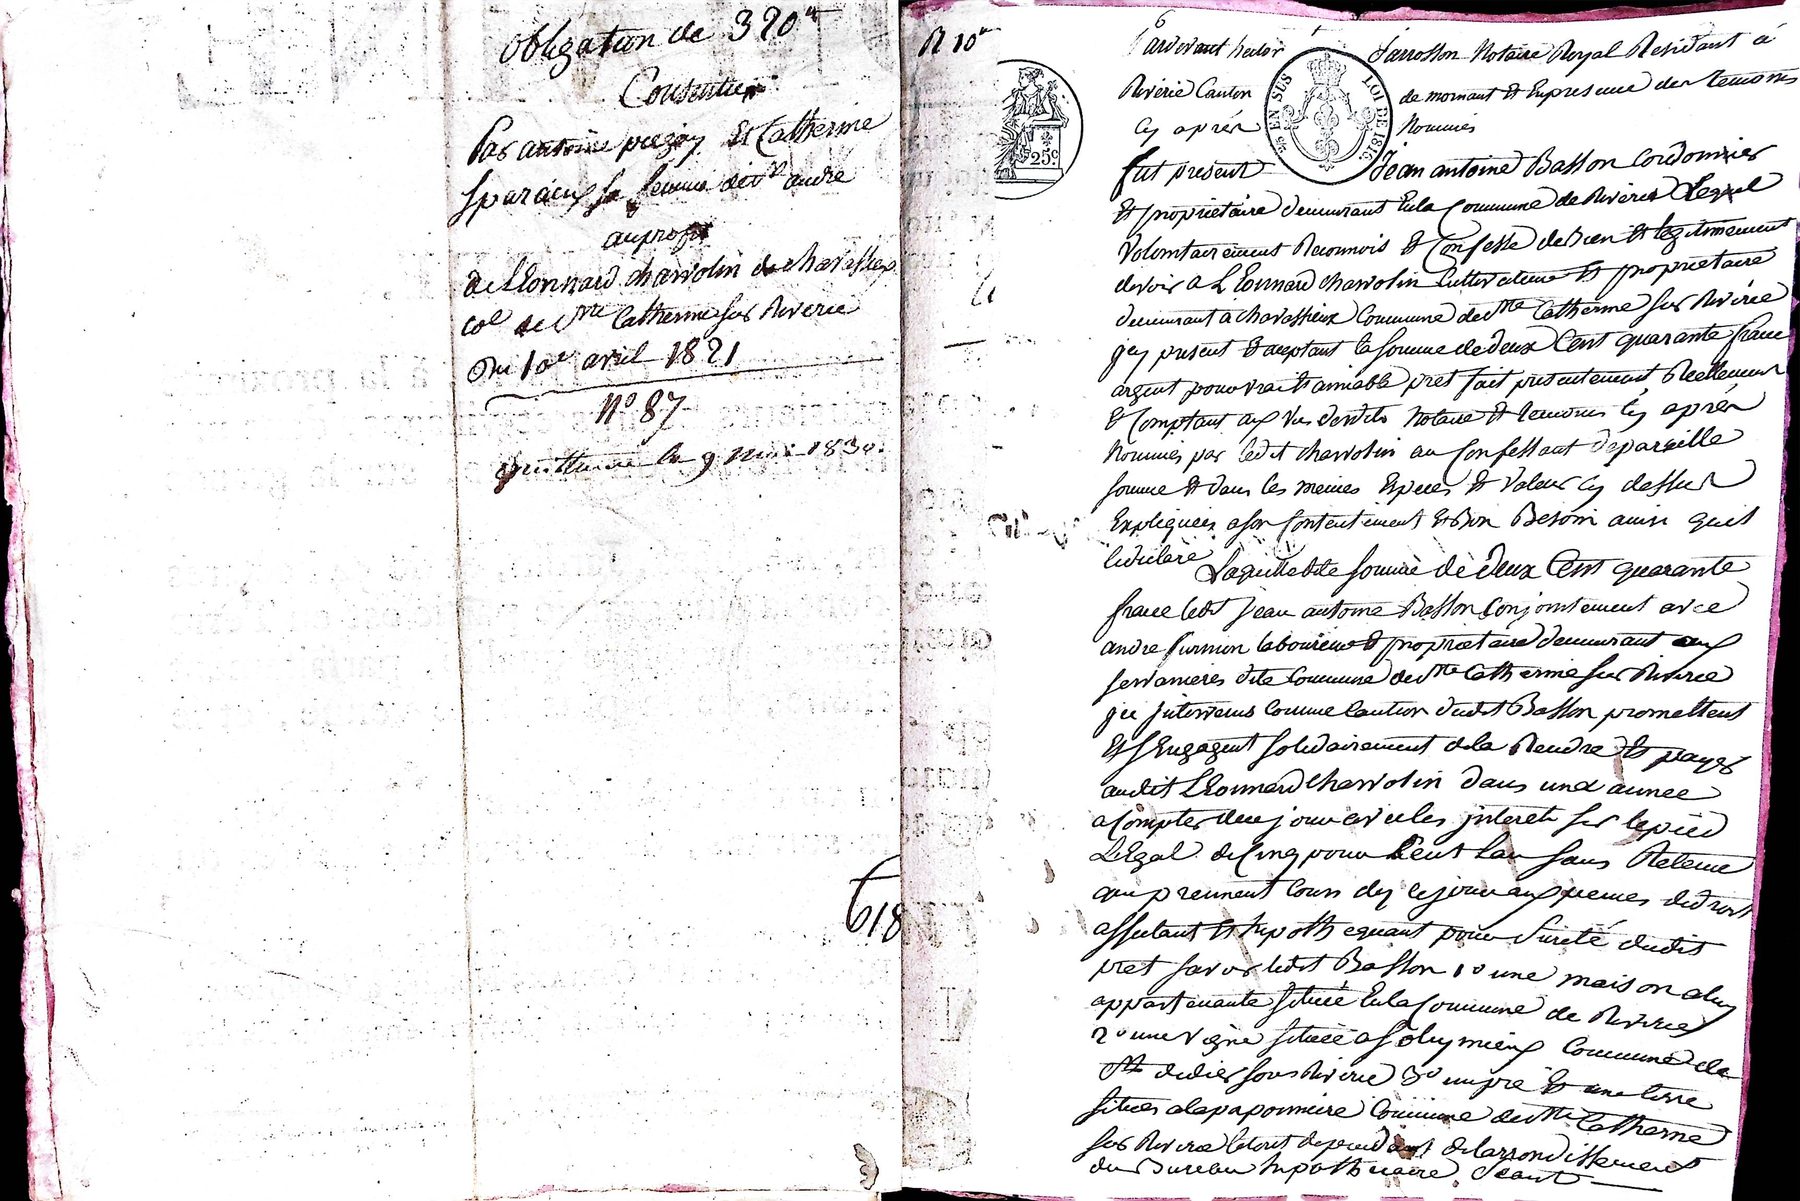 Obligation de 320#
Consentie
Par antoine pugey Et Catherine
sa femme de St andre
au profit
de LEonnard charvolin de chavassieux
coe de Ste Catherine sur Riverie
Du 10e avril 1821
N° 87
quittance le 9 mai 1830.
618
R 10e
25c
25 EN SUS
LOI DE 1816.
6
Pardevant hector Jarrosson Notaire Royal Residant á
Riverie Canton de mornant Et En presence des temoins
Cy aprés Nommés
fut present Jean antoine Basson Cordonnier
Et propriétaire demeurant En la Commune de Riverie Lequel
Volontairement Reconnois Et Confesse de bien Et legitimement
devoir a LEonnard charvolin Cultivateur Et propriétaire
demeurant a chavassieux Commune de Ste Catherine sur Riverie
icy present Et aceptant la somme de deux Cent quarante franc
argent pour vrai Et amiable pret fait presentement Reellement
Et Comptant aux Vus desdits Notaire Et temoins Cy aprés
Nommés par ledit charvolin au Confessant de pareille
somme Et dans les meines Especes Et Valeur Cy dessus
Expliquées a son Contentement Et Bon Besoin ainsi qu'il
le declare
Laquelle dite somme de deux Cent quarante
franc ledit Jean antoine Basson Conjointement avec
andre laboureur Et propriétaire demeurant aux
dite Commune de Ste Catherine sur Riverie
ici Intervenus Comme Caution dudit Basson promettent
Et s'Engagent solidairement de la Rendre Et payer
audit LEonnard charvolin dans une année
a Compter de ce jour avec les interets sur le pied
LEgal de Cinq pour Cent l'an sans Retenue
qui prennent Cours des ce jour aux peines de droit
affectant Et hypothequant pour sureté dudit
pret savoir ledit Basson 1° une maison a luy
appartenante située En la Commune de Riverie
2° une vigne située a Solymieux Commune de
St didier sous Riverie 3° un pré Et une terre
situés a la paponniere Commune de Ste Catherine
sur Riverie le tout dependant de l'arrondissement
du Bureau hypothecaire seant